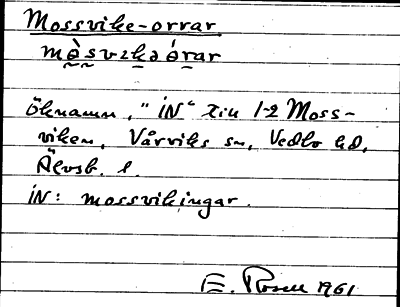 Mossvike-orrar
mòsvikə órar
öknamn, "iN" till 1-2 Moss-
viken, Vårviks sn, Vedbo hd,
Älvsb. l.
iN: mossvikingar.
E. Rosell 1961